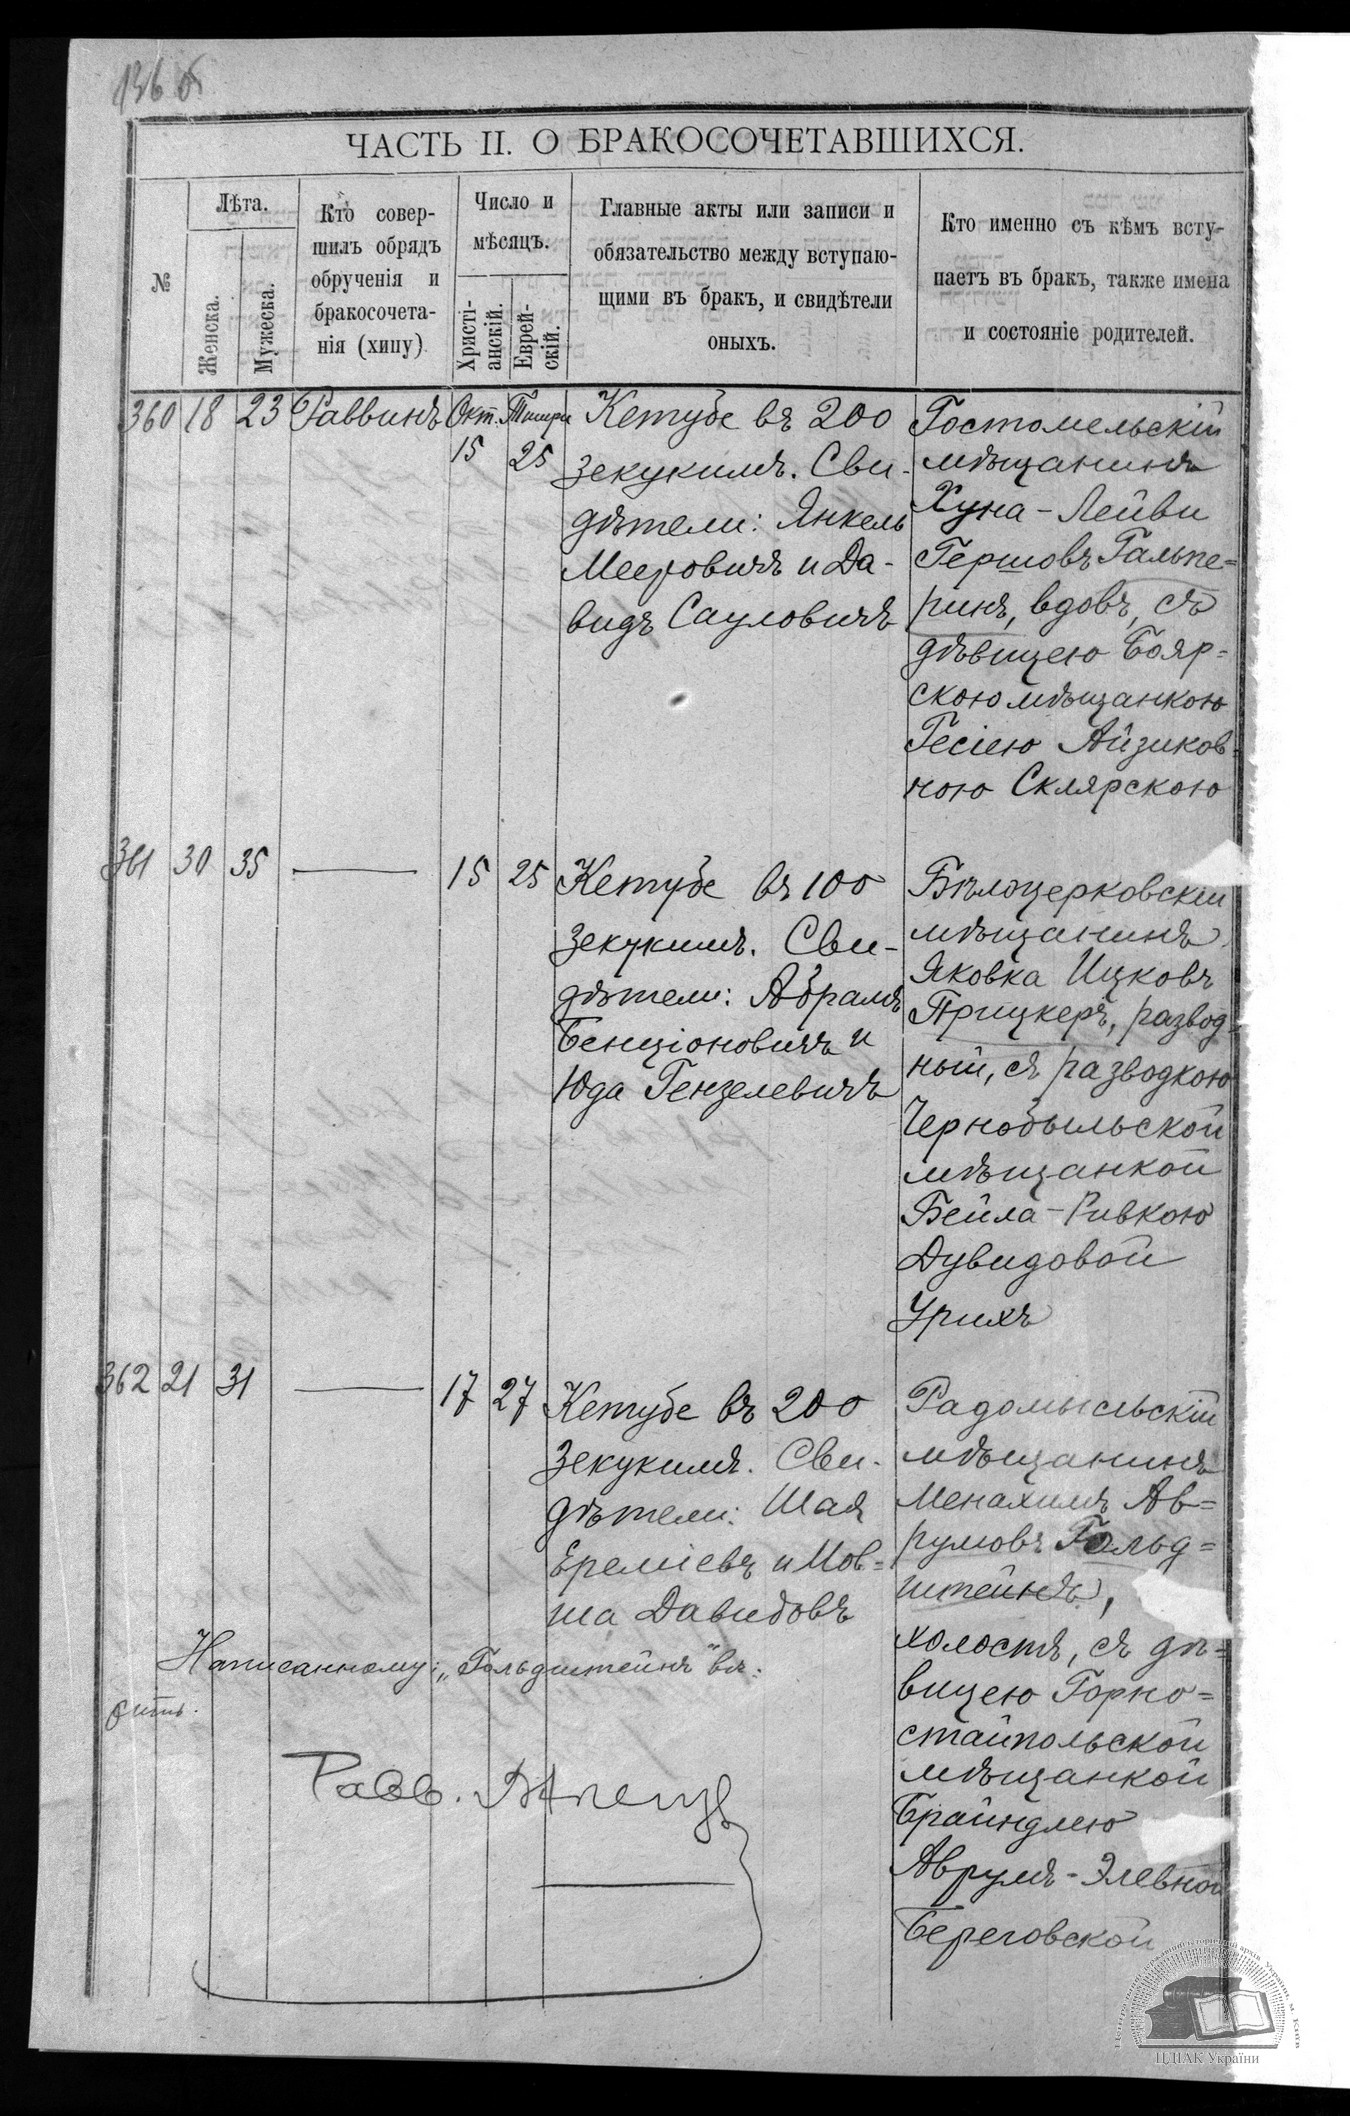 136 об
ЧАСТЬ II. О БРАКОСОЧЕТАВШИХСЯ.
№
Лѣта.
Женска.
Мужеска.
Кто совер-
шилъ обрядъ
обрученія и
бракосочета-
нія (хипу)
Число и
мѣсяцъ.
Христі-
анскій.
Еврей-
скій.
Главные акты или записи и
обязательство между вступаю-
щими въ бракъ, и свидѣтели
оныхъ.
Кто именно съ кѣмъ всту-
паетъ въ бракъ, также имена
и состояніе родителей.
360 18 23 Раввинъ Окт. 15 Тишри 25
Кетубе въ 200
зекукимъ. Сви-
дѣтели: Янкель
Мееровичъ и Да-
видъ Сауловичъ
Гостомельскій
мѣщанинъ
Хуна-Лейви
Гершовъ Гальпе=
ринъ, вдовъ, съ
дѣвицею Бояр=
скою мѣщанкою
Гесіею Айзиков=
ною Склярскою
361 30 35 — 15 25
Кетубе въ 100
зекукимъ. Сви-
дѣтели: Абрамъ
Бенціоновичъ и
Юда Гензелевичъ
Бѣлоцерковскій
мѣщанинъ
Яковка Ицковъ
Прицкеръ, развод=
ный, съ разводкою
Чернобыльской
мѣщанкой
Бейла-Ривкою
Дувидовой
Урихъ
362 21 31 — 17 27
Кетубе въ 200
зекукимъ. Сви-
дѣтели: Шая
Ереміевъ и Мов=
ша Давидовъ
Радомысльскій
мѣщанинъ
Менахимъ Ав=
румовъ Гольд=
штейнъ,
холостъ, съ дѣ=
вицею Горно=
стайпольской
мѣщанкой
Брайндлею
Аврумъ-Элевной
Береговской
Написанному: „Гольдштейнъ" вѣ:
рить.
Равв.
ЦДІАК України